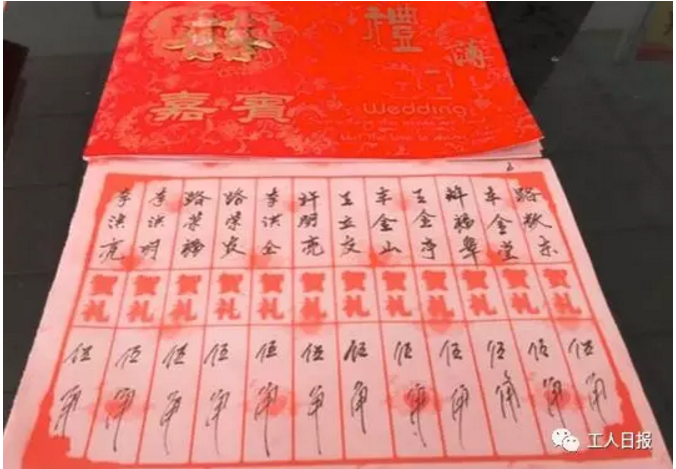 囍
禮簿
嘉賓
Wedding
路敬东 贺礼 伍角
金堂 贺礼 伍角
贺礼 伍角
王金亭 贺礼 伍角
金山 贺礼 伍角
王立文 贺礼 伍角
许明亮 贺礼 伍角
李洪全 贺礼 伍角
路荣安 贺礼 伍角
路荣福 贺礼 伍角
李洪明 贺礼 伍角
李洪亮 贺礼 伍角
工人日报